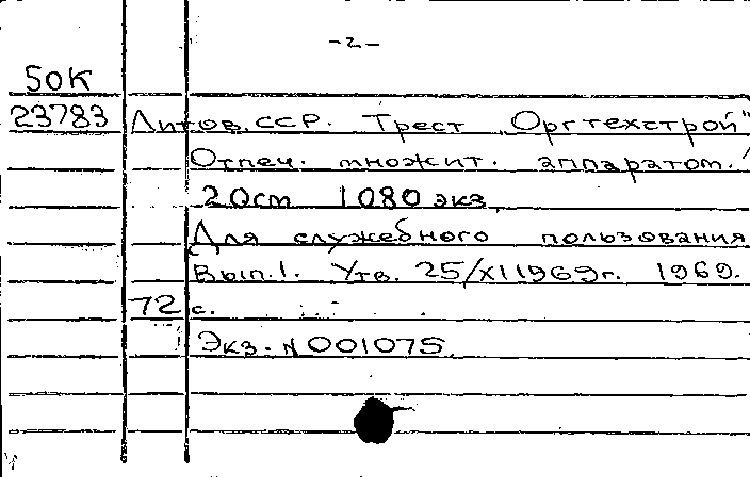 -2-
50К
23783 Литов. ССР. Трест „Оргтехстрой"
Отпеч. множит. аппаратом./
20см 1080 экз.
Для служебного пользования
Вып.1. Утв. 25/XI 1969г. 1969.
72 с.
Экз. N 001075.